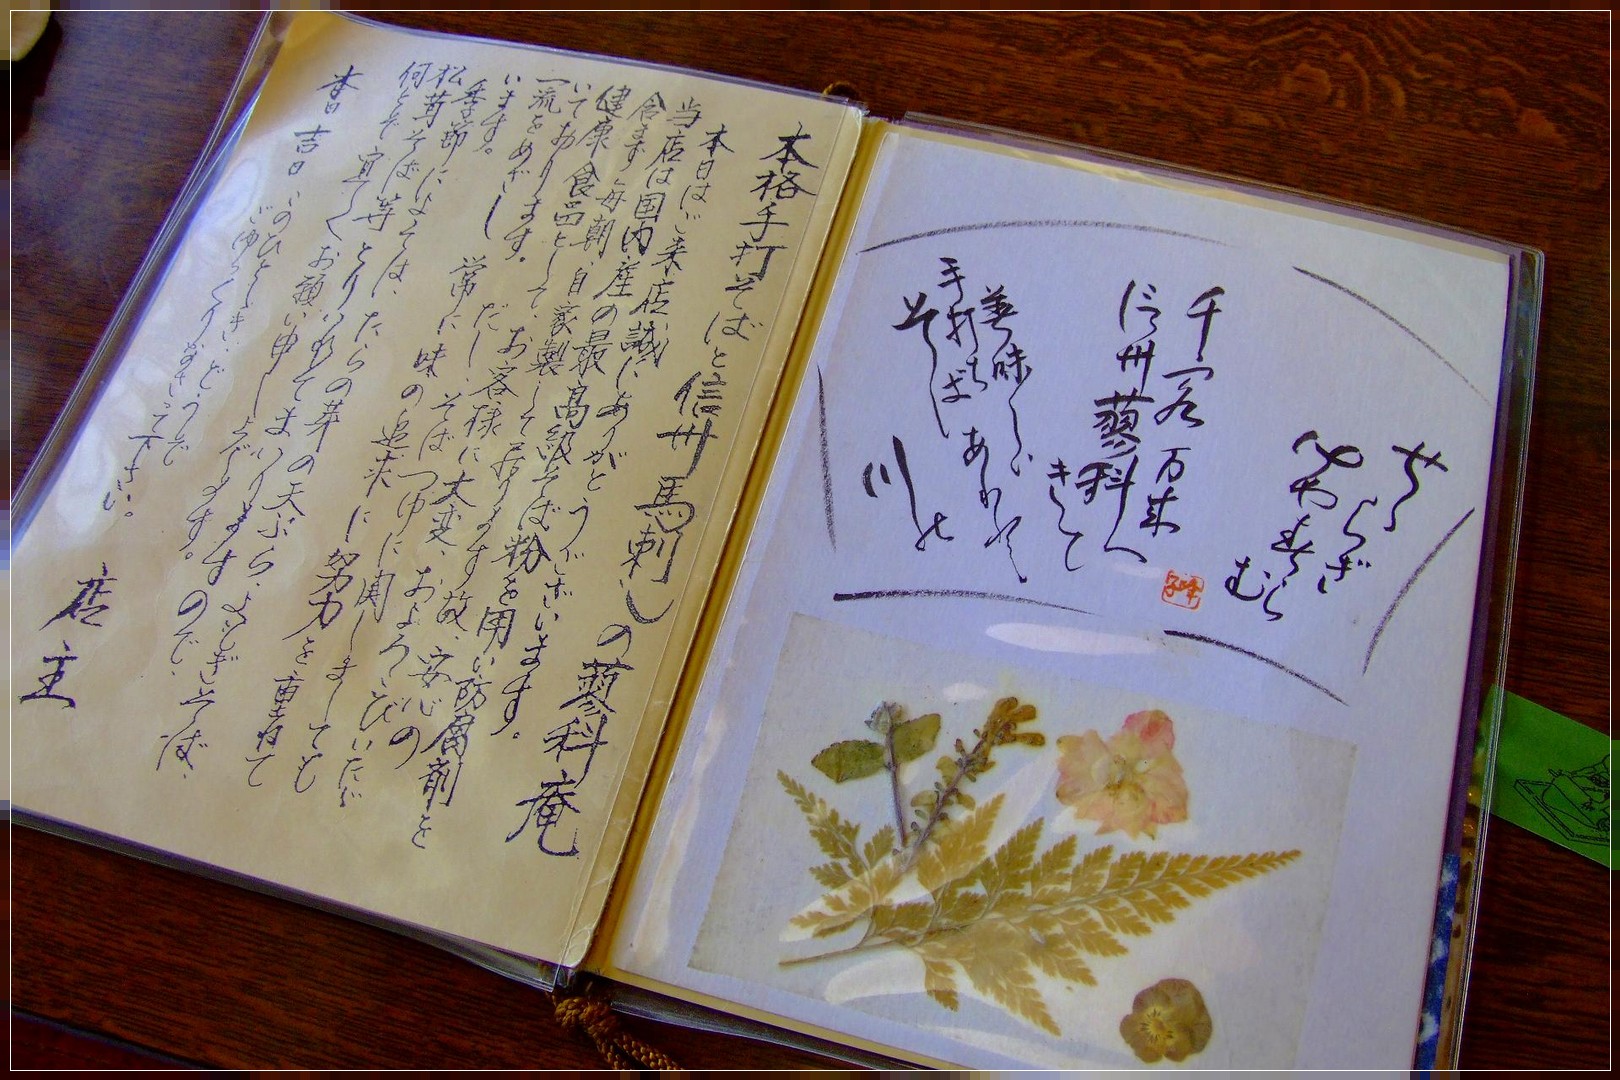 本格手打そばと信州馬刺しの蓼科庵
本日はご来店誠にありがとうございます。
当店は国内産の最高級そば粉を用い防腐剤を
含まず毎朝自家製して居ります故、安心の
健康食品として、お客様に大変、およろこびいただ
いております。だし、そばつゆに関しましても
一流をめざし常に味の追求に努力を重ねて
います。
季節によっては、たらの芽の天ぷら、よもぎそば、
松茸そば等とりいれてまいりますので、
何とぞ宜しくお願い申し上げます。
このひとときどうぞ
ごゆっくりなさって下さい。
吉日
店主
千客万来
信州蓼科へ
きて
美味しい
手打ちそば
あれ
せせらぎ
むら